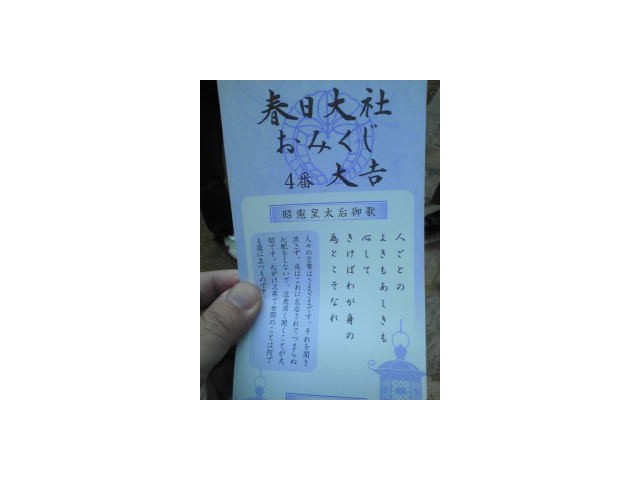 春日大社
おみくじ
4番 大吉
昭憲皇太后御歌
人ごとの
よきもあしきも
心して
きけばわが身の
為とこそなれ
人々の言葉はさまざまです。それを聞き
流さず、或はこれに左右されてつまらぬ
心配をしないで、注意深く聞くことが大
切です。心がけ次第で世間のことは何で
も役に立つものです。